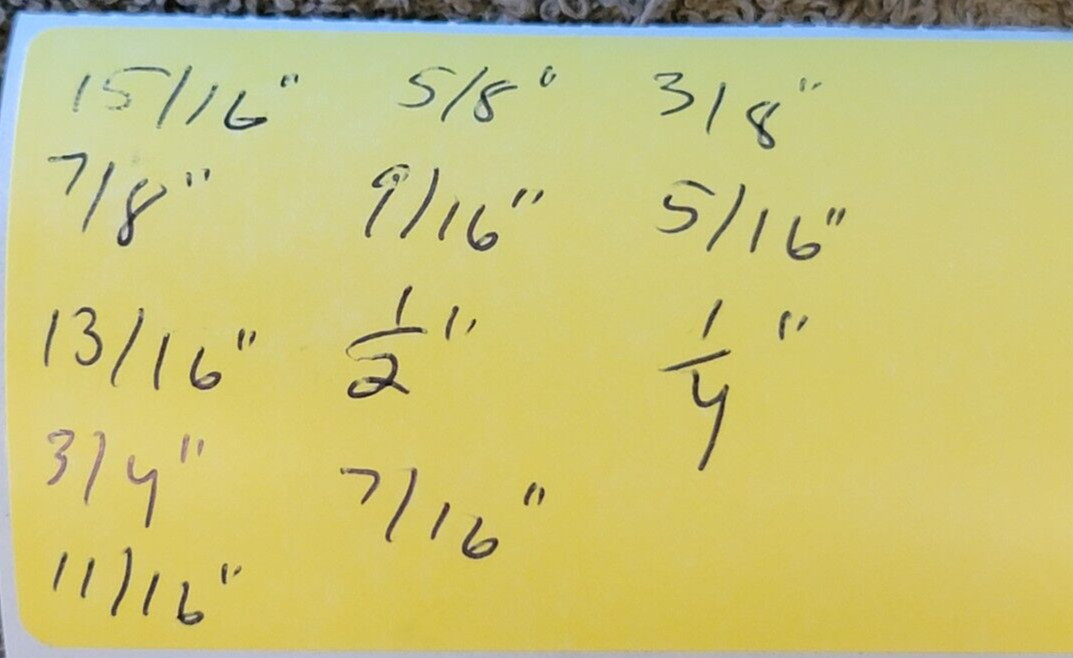 15/16" 5/8" 3/8"
7/8" 9/16" 5/16"
13/16" 1/2" 1/4"
3/4" 7/16"
11/16"